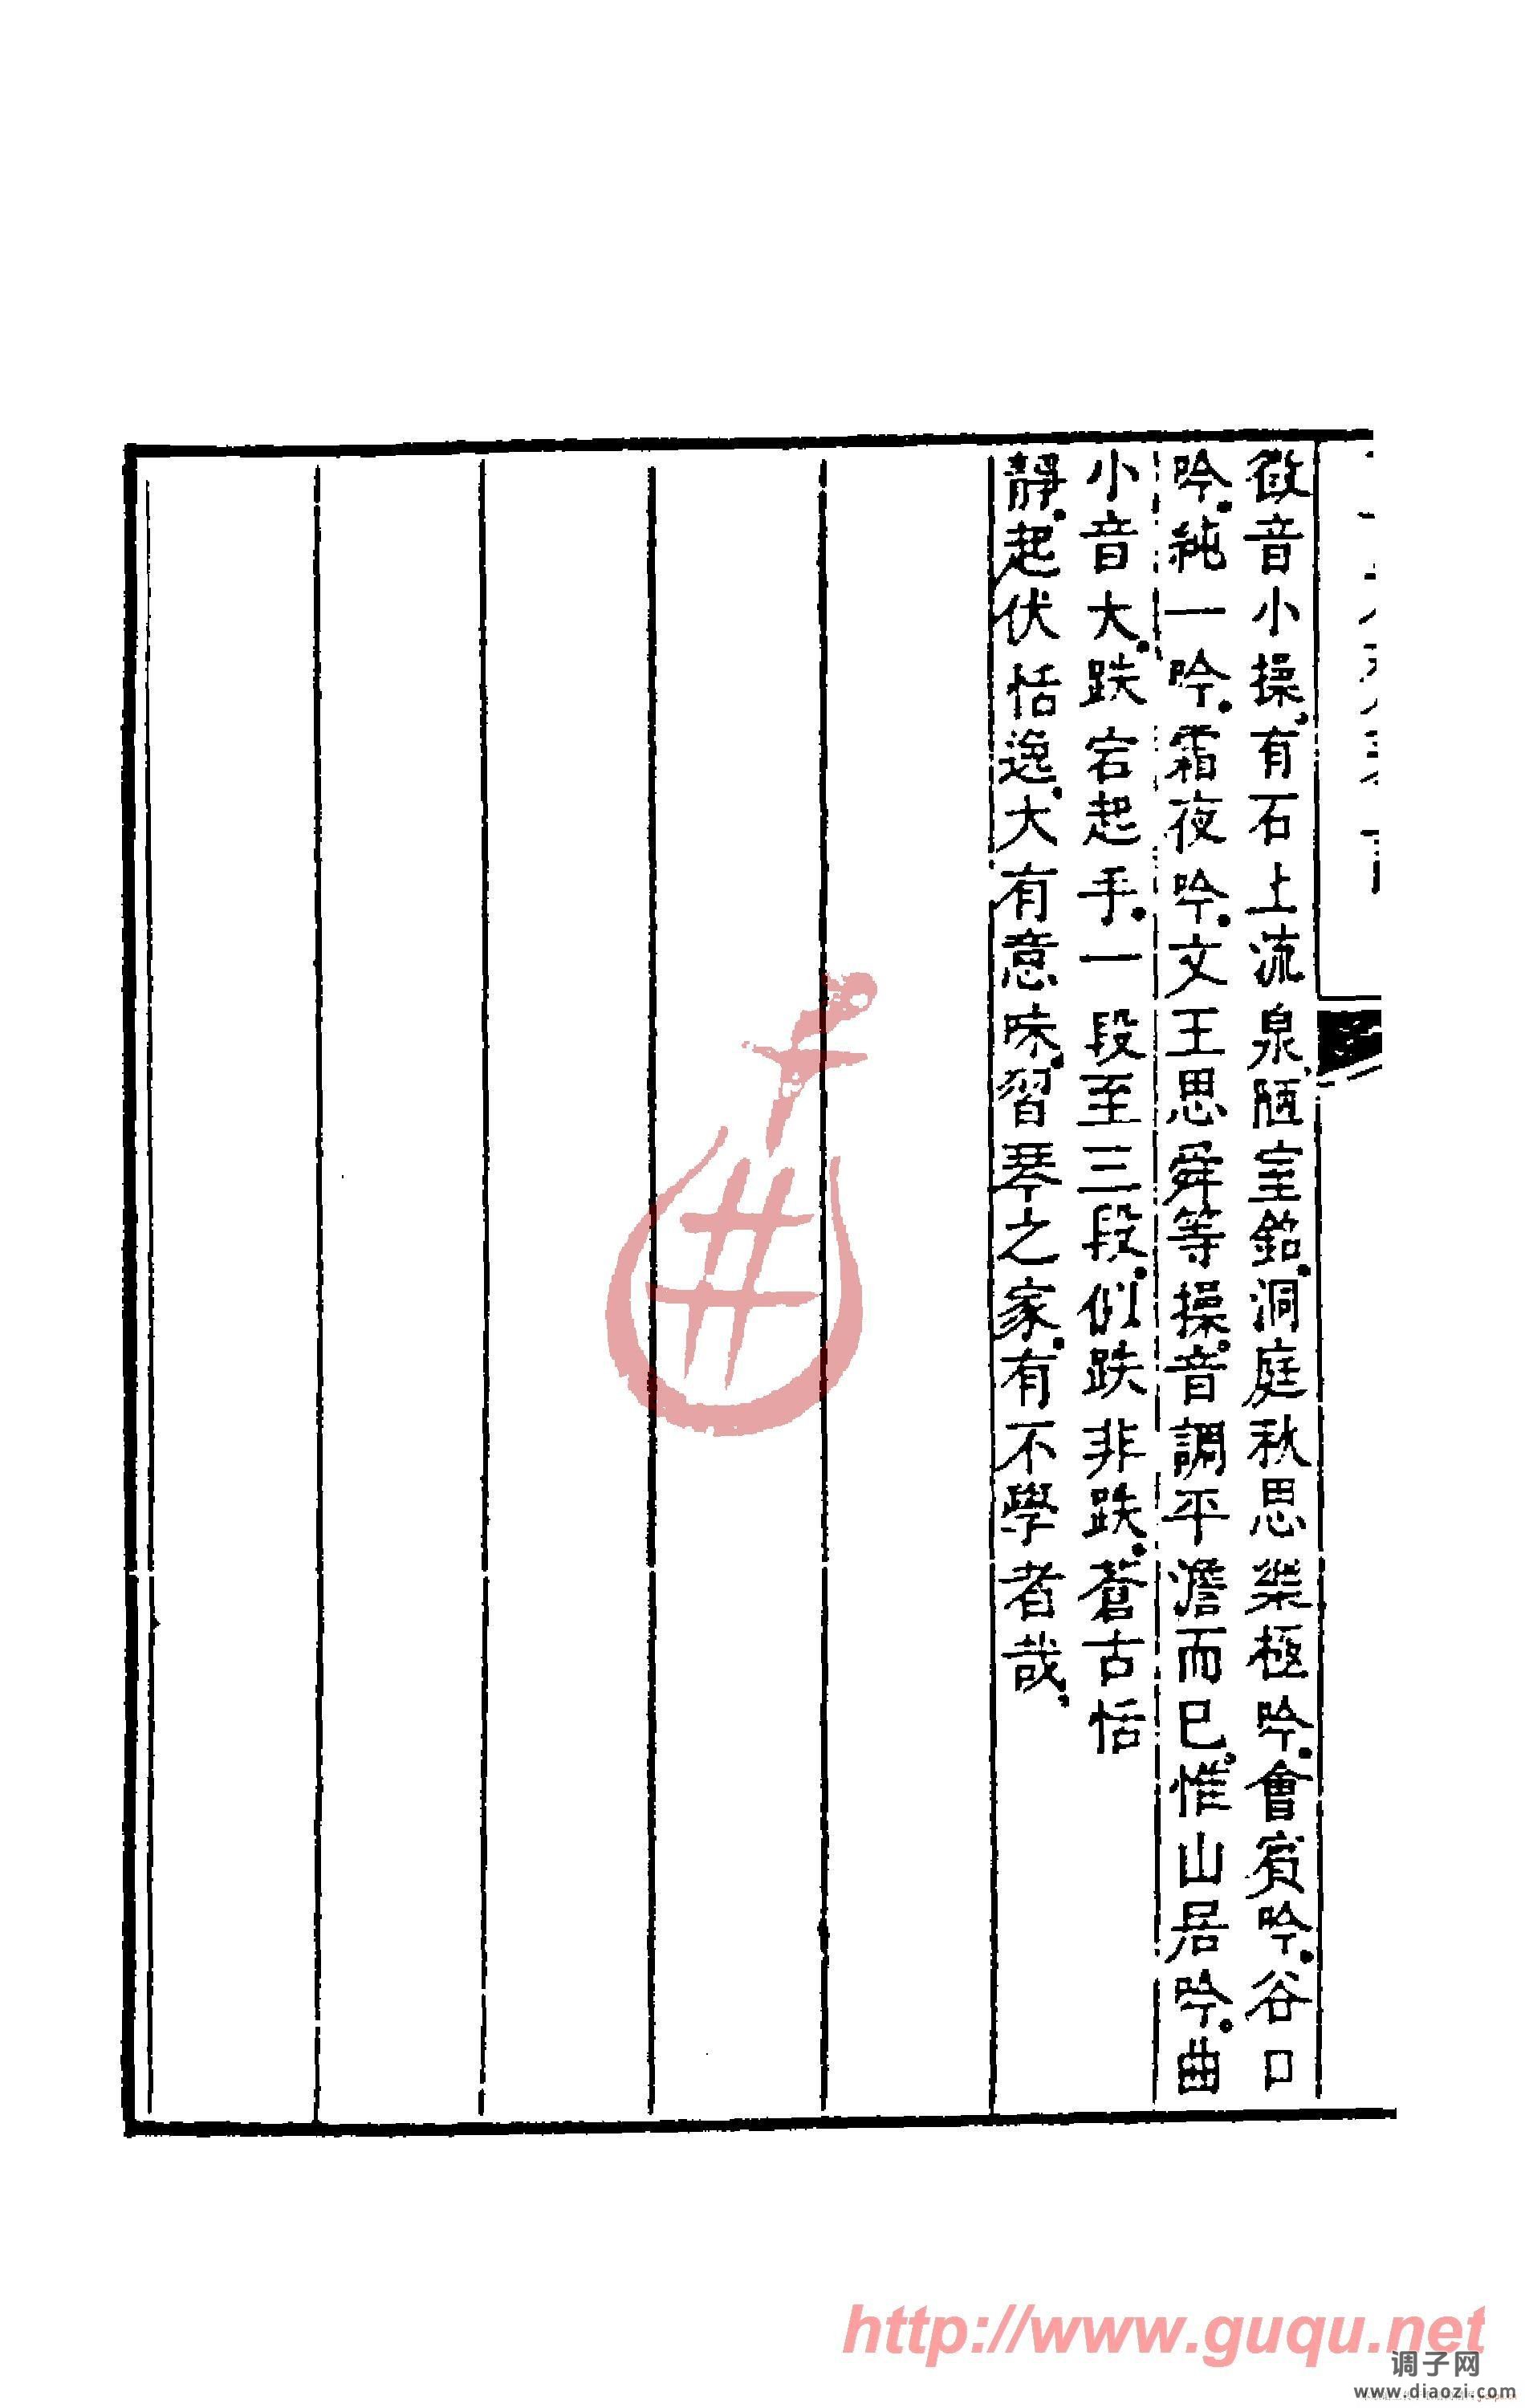 徵音小操有石上流泉陋室銘洞庭秋思樂極吟會賓吟谷口
吟純一吟霜夜吟文王思舜等操音調平澹而已惟山居吟曲
小音大跌宕起手一段至三段似跌非跌蒼古恬
靜起伏恬逸大有意味習琴之家有不學者哉
http://www.guqu.net
调子网
www.diaozi.com